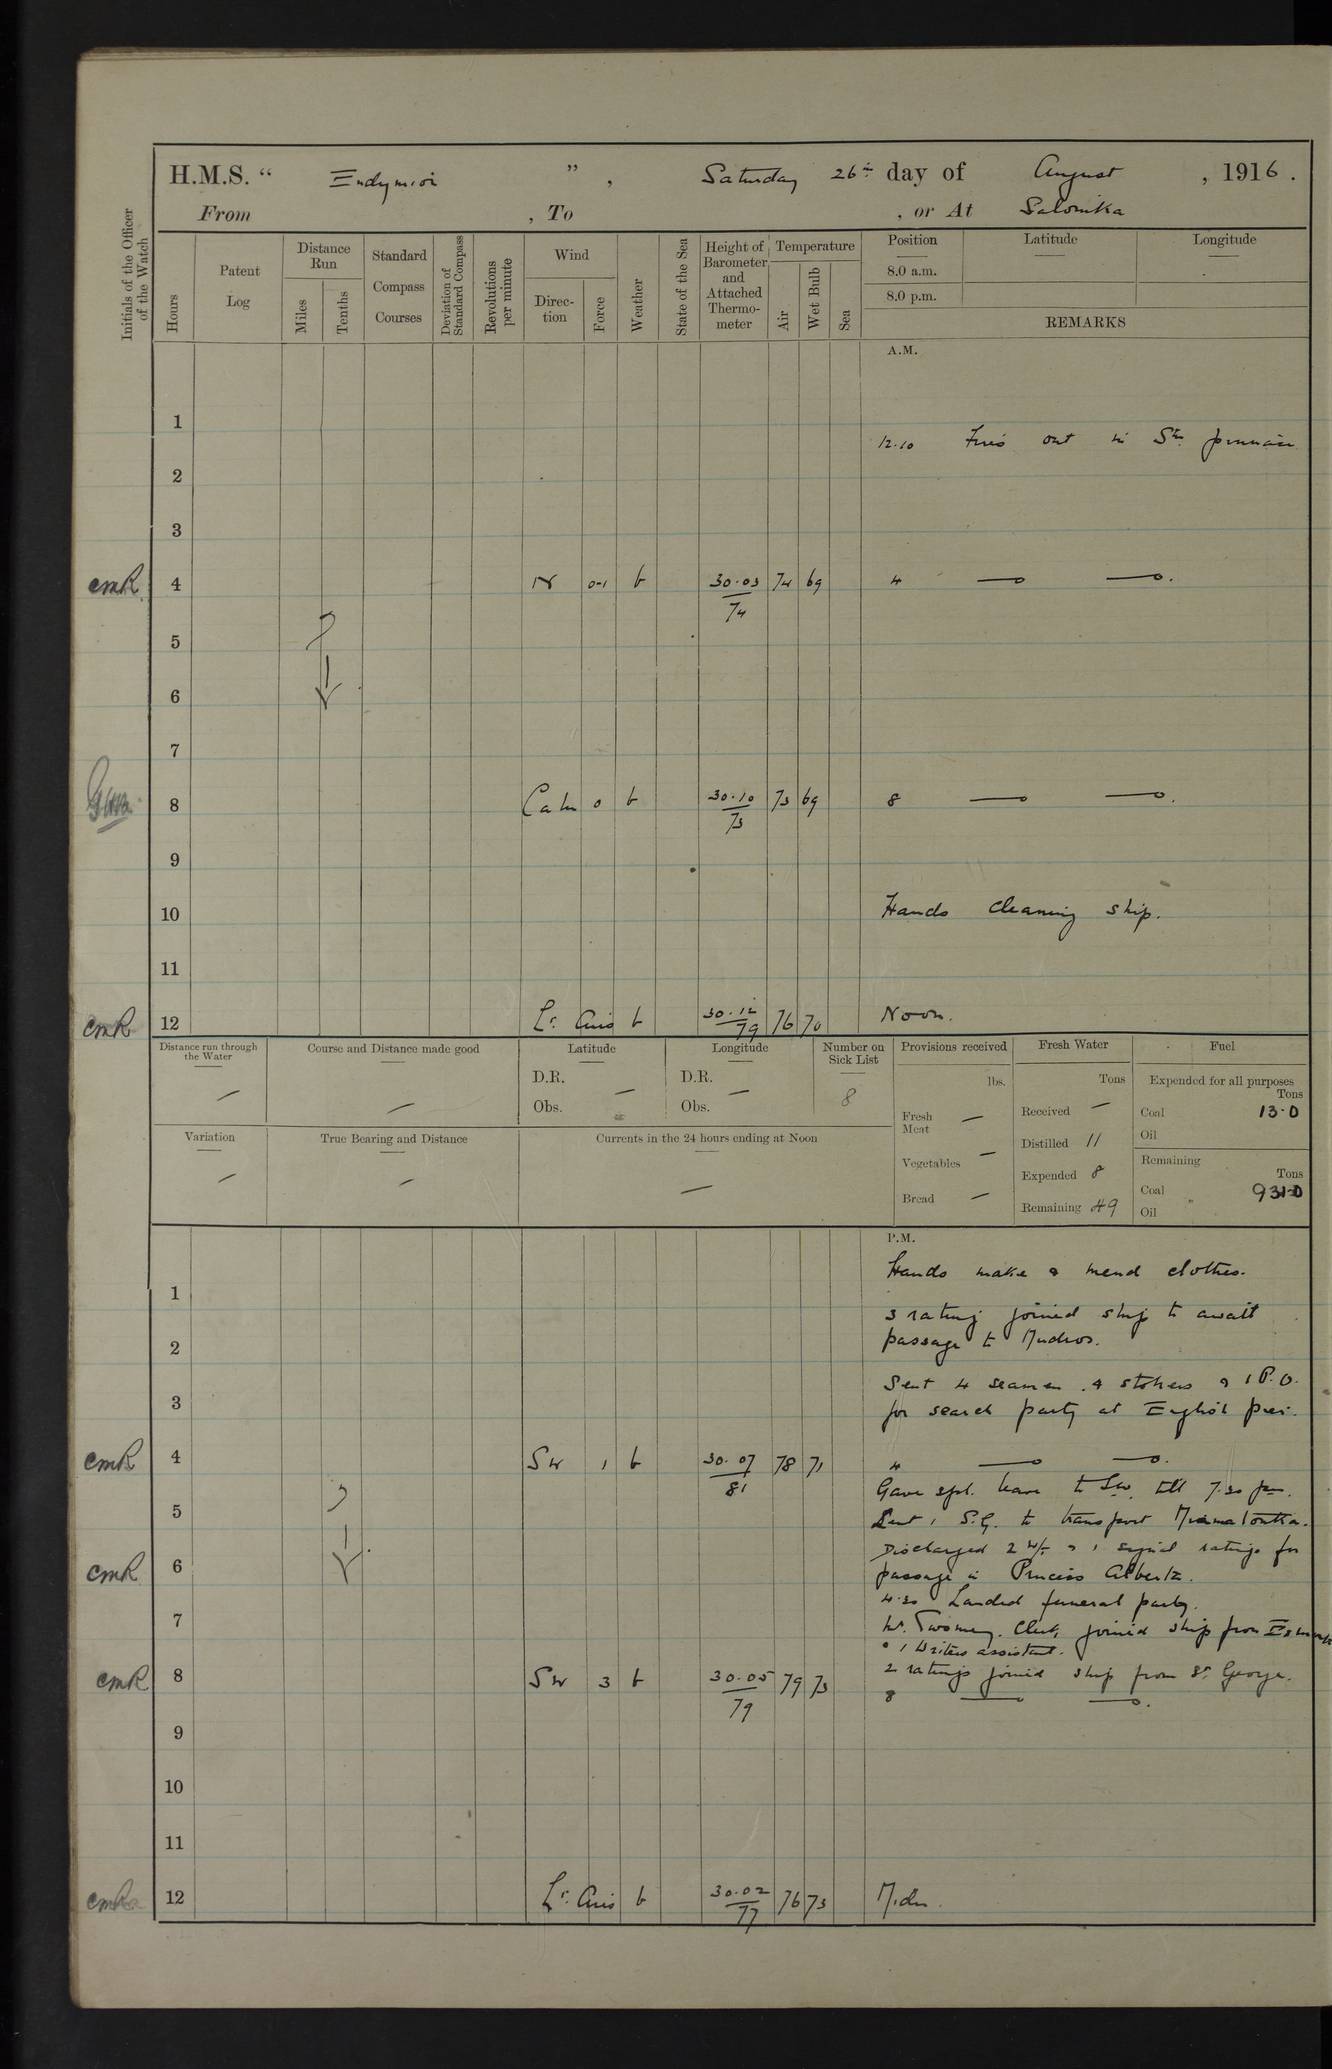 H.M.S. “ Endymion ” , Saturday 26th day of August , 1916 .
From , To , or At Salonika
Initials of the Officer of the Watch
Hours
Patent Log
Distance Run
Miles
Tenths
Standard Compass Courses
Deviation of Standard Compass
Revolutions per minute
Wind
Direction
Force
Weather
State of the Sea
Height of Barometer and Attached Thermometer
Temperature
Air
Wet Bulb
Sea
Position Latitude Longitude
8.0 a.m.
8.0 p.m.
REMARKS
A.M.
1
12.10 Fires out in Stm pinnace
2
3
cmR 4 N 0-1 b 30.03 74 69 4
74
5
6
7
8 Calm 0 b 30.10 73 69 8
73
9
10 Hands cleaning ship.
11
cmR 12 Lt. Airs b 30.12 76 70 Noon.
79
Distance run through the Water
Course and Distance made good
Latitude
D.R.
Obs. —
Longitude
D.R. —
Obs.
Number on Sick List
8
Provisions received
lbs.
Fresh Meat —
Vegetables —
Bread —
Fresh Water
Tons
Received —
Distilled 11
Expended 8
Remaining 49
Fuel
Expended for all purposes
Tons
Coal 13.0
Oil
Remaining
Tons
Coal 931.0
Oil
Variation
True Bearing and Distance
Currents in the 24 hours ending at Noon
P.M.
Hands make & mend clothes.
1
3 ratings joined ship to await
2 passage to Mudros.
Sent 4 seamen . 4 stokers & 1 P.O.
3 for search party at English pier.
cmR 4 SW 1 b 30.07 78 71 4
81
Gave spl. leave to till 7.30 pm.
5 Lent 1 S.G. to transport
Discharged 2 W/T & 1 signal ratings for
cmR 6 passage in Princess Alberta.
4.30 Landed funeral party.
7 Mr. Twomey. Clerk, joined ship from
& 1 Writers assistant.
cmR 8 SW 3 b 30.05 79 73 2 ratings joined ship from St. George.
79 8
9
10
11
cmR 12 Lt. Airs b 30.02 76 73 Midn.
77